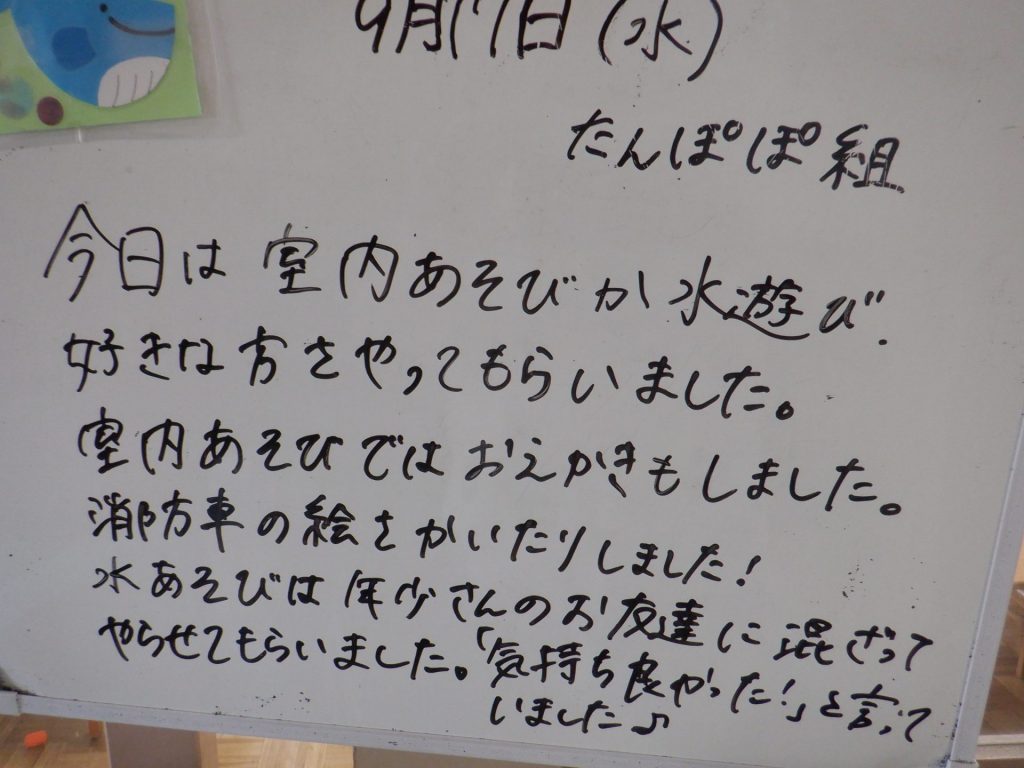 9月17日(水)
たんぽぽ組
今日は室内あそびか水遊び.
好きな方をやってもらいました。
室内あそびではおえかきもしました。
消防車の絵をかいたりしました!
水あそびは年少さんのお友達に混ざって
やらせてもらいました。「気持ち良かった!」と言って
いました♪